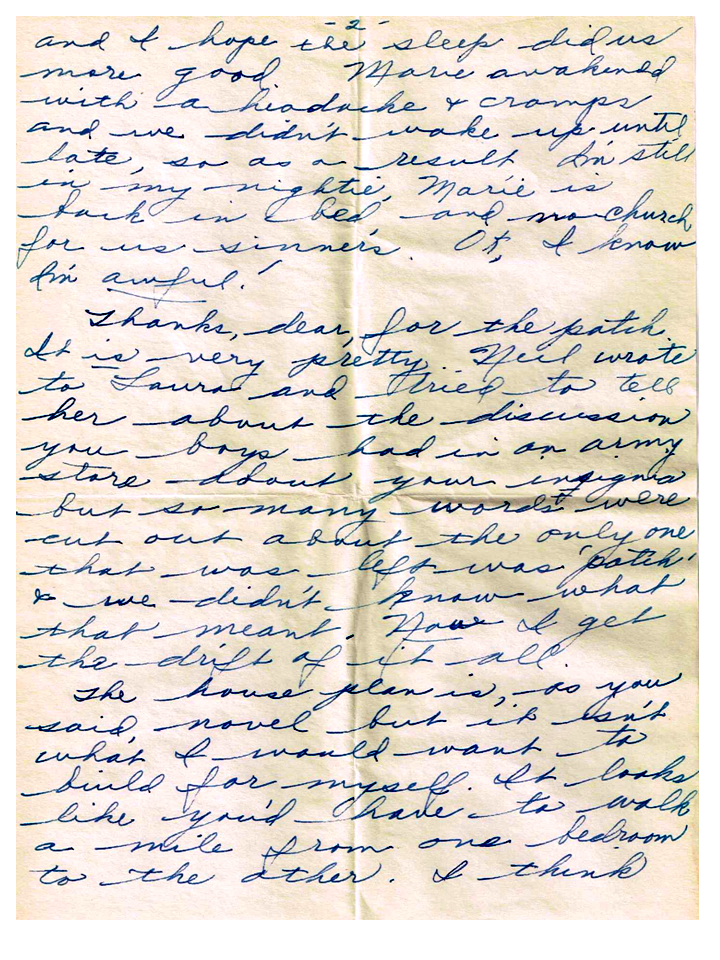 -2-
and I hope the sleep did us
more good Marie awakened
with a headache & cramps
and we didn't wake up until
late, so as a result I'm still
in my nightie, Marie is
back in bed and no church
for us sinners. OK, I know
I'm awful!
Thanks, dear, for the patch.
It is very pretty. Neil wrote
to Laura and tried to tell
her about the discussion
you boys had in an army
store about your insignia
but so many words were
cut out about the only one
that was left was 'patch'
& we didn't know what
that meant. Now I get
the drift of it all.
The house plan is, as you
said, novel but it isn't
what I would want to
build for myself. It looks
like you'd have to walk
a mile from one bedroom
to the other. I think